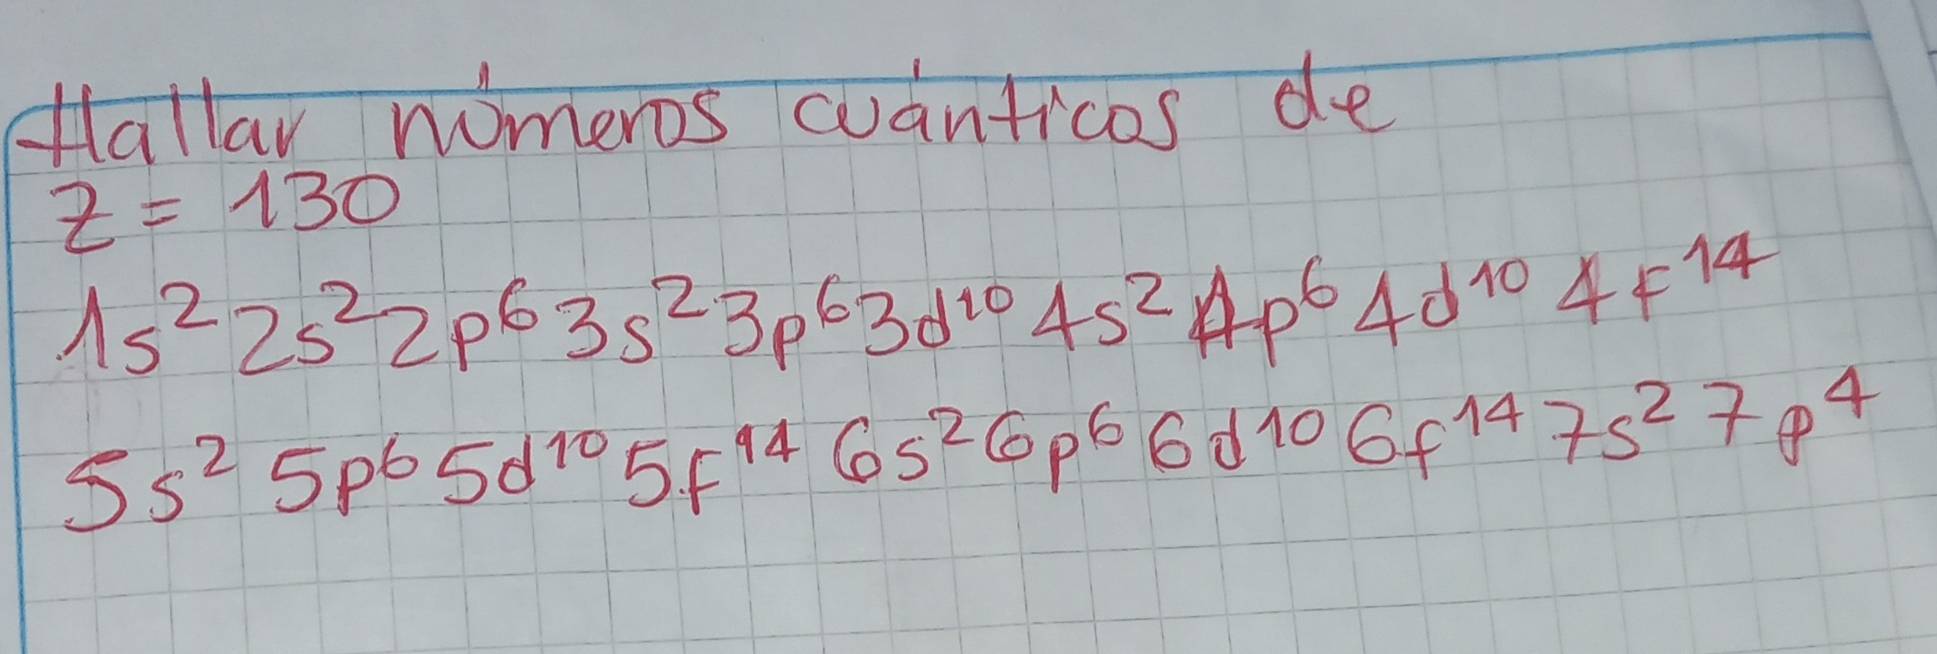 Hallar números cuánticos de
z = 130
1s² 2s² 2p⁶ 3s² 3p⁶ 3d¹⁰ 4s² 4p⁶ 4d¹⁰ 4f¹⁴
5s² 5p⁶ 5d¹⁰ 5f¹⁴ 6s² 6p⁶ 6d¹⁰ 6f¹⁴ 7s² 7p⁴